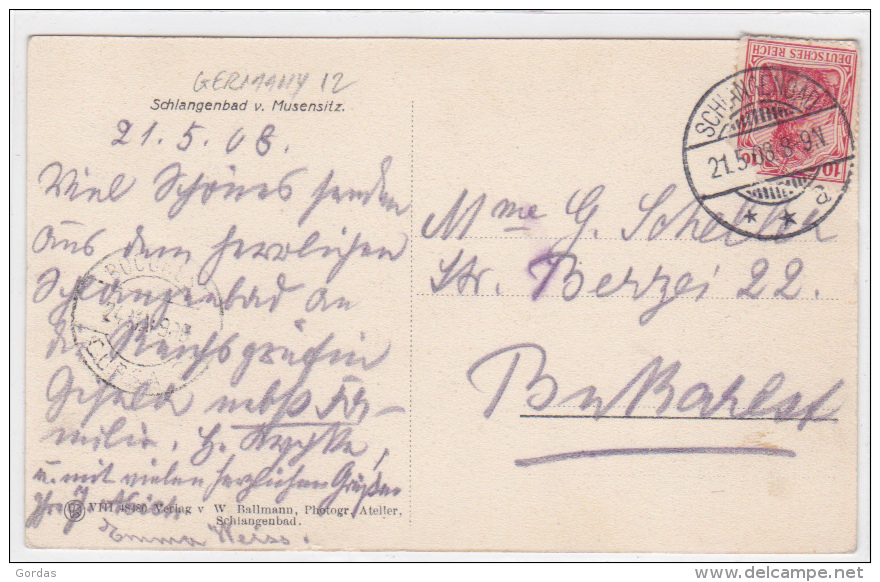 GERMANY 12
Schlangenbad v. Musensitz.
21.5.08.
Viel Schönes senden
aus dem herrlichen
Schlangenbad an
die Reichsgräfin
nebst Fa-
milie,
u. mit vielen herzlichen Grüßen
VIII Verlag v W. Ballmann, Photogr. Atelier,
Schlangenbad.
Emma Weiss.
DEUTSCHES REICH
10
SCHLANGENBAD
21.5.08.8-9N
a
Mme G.
Str. Berzei 22.
Bukarest
Gordas
www.delcampe.net